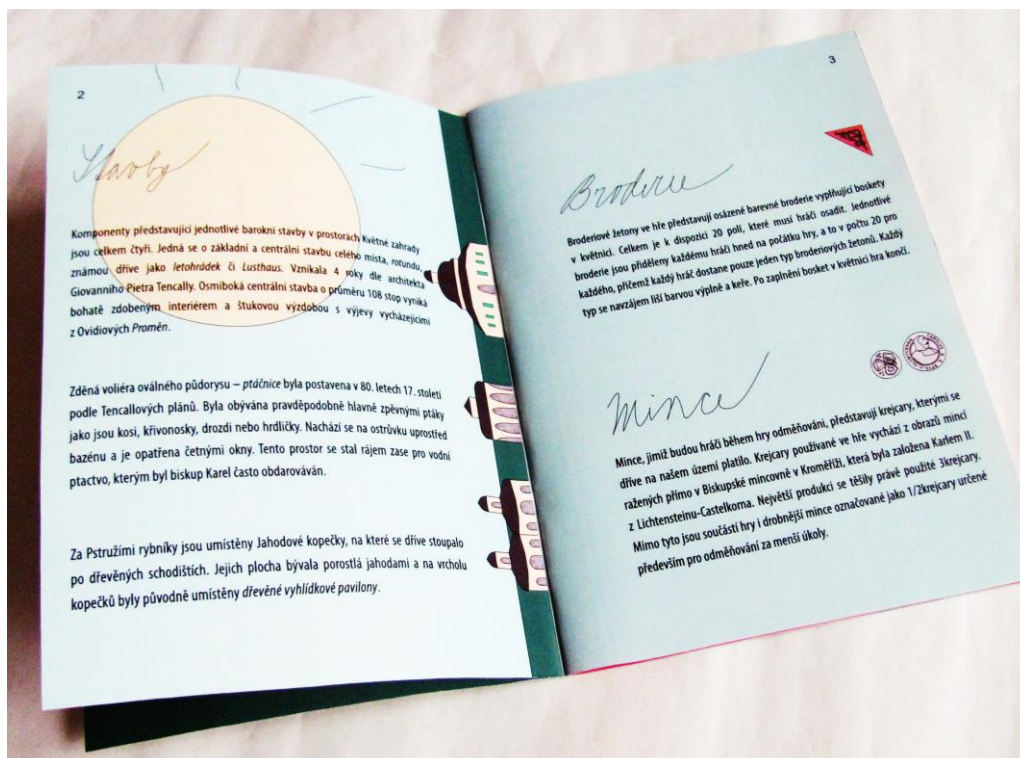 2
Stavby
Komponenty představující jednotlivé barokní stavby v prostorách Květné zahrady
jsou celkem čtyři. Jedná se o základní a centrální stavbu celého místa, rotundu,
známou dříve jako letohrádek či Lusthaus. Vznikala 4 roky dle architekta
Giovanniho Pietra Tencally. Osmiboká centrální stavba o průměru 108 stop vyniká
bohatě zdobeným interiérem a štukovou výzdobou s výjevy vycházejícími
z Ovidiových Proměn.
Zděná voliéra oválného půdorysu – ptáčnice byla postavena v 80. letech 17. století
podle Tencallových plánů. Byla obývána pravděpodobně hlavně zpěvnými ptáky
jako jsou kosi, křivonosky, drozdi nebo hrdličky. Nachází se na ostrůvku uprostřed
bazénu a je opatřena četnými okny. Tento prostor se stal rájem zase pro vodní
ptactvo, kterým byl biskup Karel často obdarováván.
Za Pstružími rybníky jsou umístěny Jahodové kopečky, na které se dříve stoupalo
po dřevěných schodištích. Jejich plocha bývala porostlá jahodami a na vrcholu
kopečků byly původně umístěny dřevěné vyhlídkové pavilony.
3
Broderie
Broderiové žetony ve hře představují osázené barevné broderie vyplňující boskety
v květnici. Celkem je k dispozici 20 polí, které musí hráči osadit. Jednotlivé
broderie jsou přiděleny každému hráči hned na počátku hry, a to v počtu 20 pro
každého, přičemž každý hráč dostane pouze jeden typ broderiových žetonů. Každý
typ se navzájem liší barvou výplně a keře. Po zaplnění bosket v květnici hra končí.
Mince
Mince, jimiž budou hráči během hry odměňováni, představují krejcary, kterými se
dříve na našem území platilo. Krejcary používané ve hře vychází z obrazů mincí
ražených přímo v Biskupské mincovně v Kroměříži, která byla založena Karlem II.
z Lichtensteinu-Castelkorna. Největší produkci se těšily právě použité 3krejcary.
Mimo tyto jsou součástí hry i drobnější mince označované jako 1/2krejcary určené
především pro odměňování za menší úkoly.